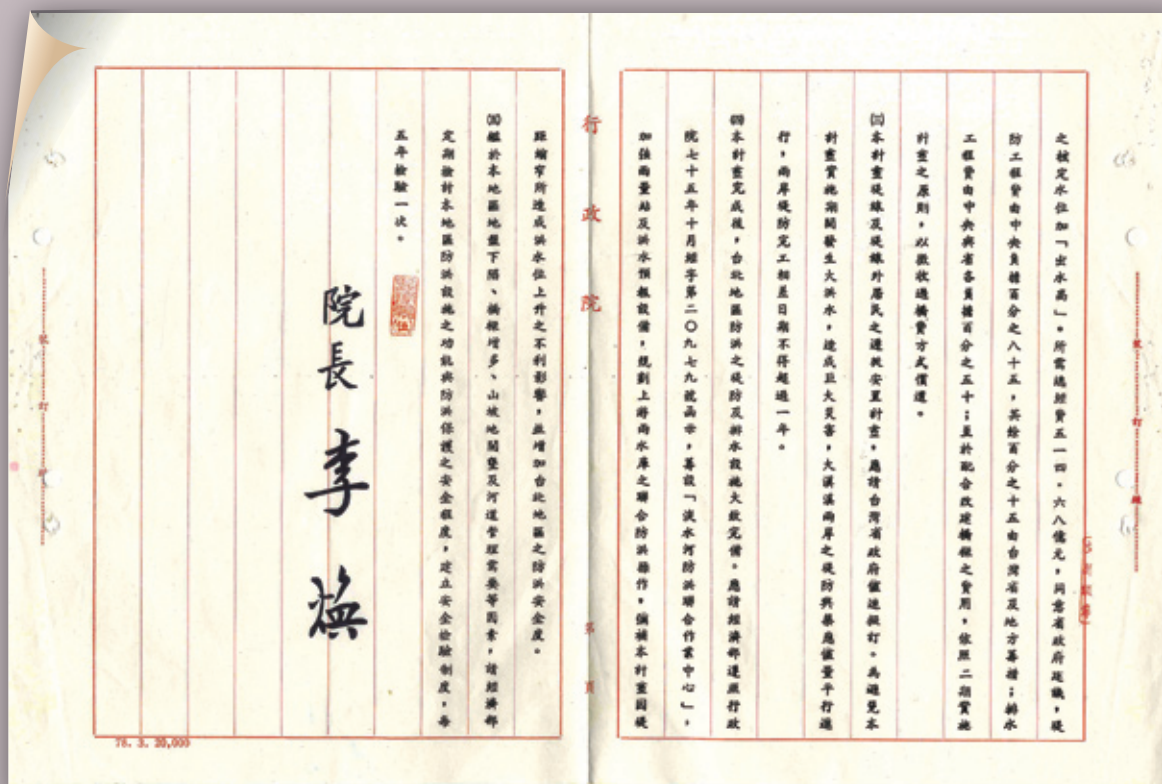 之核定水位加「出水高」。所需總經費五一四・六八億元,同意省政府建議,堤
防工程費由中央負擔百分之八十五,其餘百分之十五由台灣省及地方籌措;排水
工程費由中央與省各負擔百分之五十;至於配合改建橋樑之費用,依照二期實施
計畫之原則,以徵收過橋費方式償還。
㈢本計畫堤線及堤線外居民之遷移安置計畫,應請台灣省政府儘速擬訂。為避免本
計畫實施期間發生大洪水,造成巨大災害,大漢溪兩岸之堤防興築應儘量平行進
行,兩岸堤防完工相差日期不得超過一年。
㈣本計畫完成後,台北地區防洪之堤防及排水設施大致完備。應請經濟部遵照行政
院七十五年十月經字第二〇九七九號函示,籌設「淡水河防洪聯合作業中心」,
加強雨量站及洪水預報設備,規劃上游兩水庫之聯合防洪操作,彌補本計畫因堤
行政院
第 頁
距縮窄所造成洪水位上升之不利影響,並增加台北地區之防洪安全度。
㈤鑑於本地區地盤下陷、橋樑增多、山坡地開墾及河道管理需要等因素,請經濟部
定期檢討本地區防洪設施之功能與防洪保護之安全程度,建立安全檢驗制度,每
五年檢驗一次。
院長 李煥
76. 3. 20,000
裝 訂 線
訂